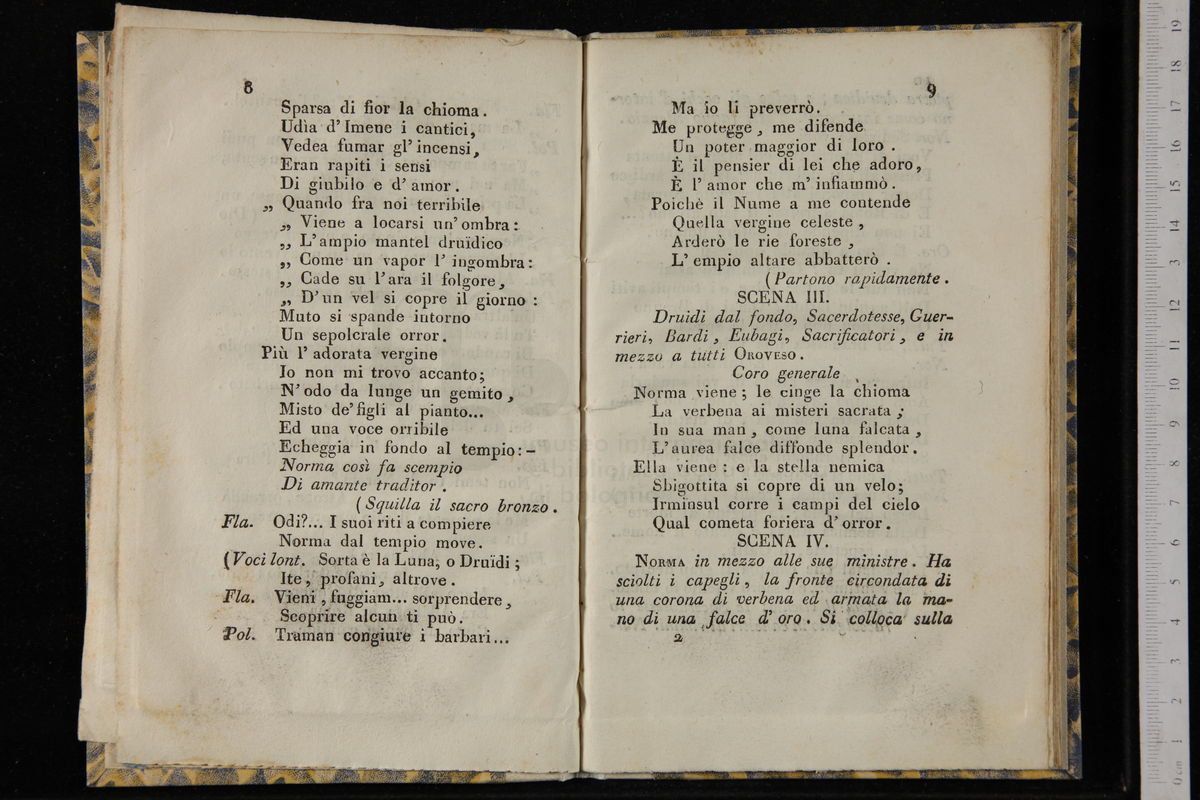 8
Sparsa di fior la chioma.
Udìa d'Imene i cantici,
Vedea fumar gl'incensi,
Eran rapiti i sensi
Di giubilo e d'amor.
„ Quando fra noi terribile
„ Viene a locarsi un'ombra:
„ L'ampio mantel druïdico
„ Come un vapor l'ingombra:
„ Cade su l'ara il folgore,
„ D'un vel si copre il giorno:
Muto si spande intorno
Un sepolcrale orror.
Più l'adorata vergine
Io non mi trovo accanto;
N'odo da lunge un gemito,
Misto de'figli al pianto...
Ed una voce orribile
Echeggia in fondo al tempio: –
Norma così fa scempio
Di amante traditor.
(Squilla il sacro bronzo.
Fla. Odi?... I suoi riti a compiere
Norma dal tempio move.
(Voci lont. Sorta è la Luna, o Druïdi;
Ite, profani, altrove.
Fla. Vieni, fuggiam... sorprendere,
Scoprire alcun ti può.
Pol. Traman congiure i barbari...
9
Ma io li preverrò.
Me protegge, me difende
Un poter maggior di loro.
È il pensier di lei che adoro,
È l'amor che m'infiammò.
Poichè il Nume a me contende
Quella vergine celeste,
Arderò le rie foreste,
L'empio altare abbatterò.
(Partono rapidamente.
SCENA III.
Druidi dal fondo, Sacerdotesse, Guer-
rieri, Bardi, Eubagi, Sacrificatori, e in
mezzo a tutti OROVESO.
Coro generale
Norma viene; le cinge la chioma
La verbena ai misteri sacrata;
In sua man, come luna falcata,
L'aurea falce diffonde splendor.
Ella viene: e la stella nemica
Sbigottita si copre di un velo;
Irminsul corre i campi del cielo
Qual cometa foriera d'orror.
SCENA IV.
NORMA in mezzo alle sue ministre. Ha
sciolti i capegli, la fronte circondata di
una corona di verbena ed armata la ma-
no di una falce d'oro. Si colloca sulla
2
0 cm 1 2 3 4 5 6 7 8 9 10 11 12 13 14 15 16 17 18 19